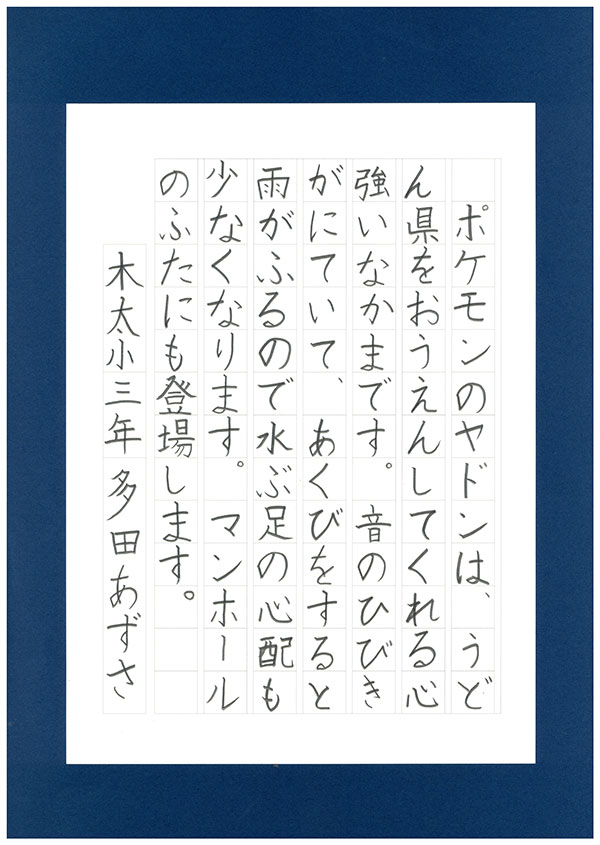 ポケモンのヤドンは、うど
ん県をおうえんしてくれる心
強いなかまです。音のひびき
がにていて、あくびをすると
雨がふるので水ぶ足の心配も
少なくなります。マンホール
のふたにも登場します。
木太小三年多田あずさ